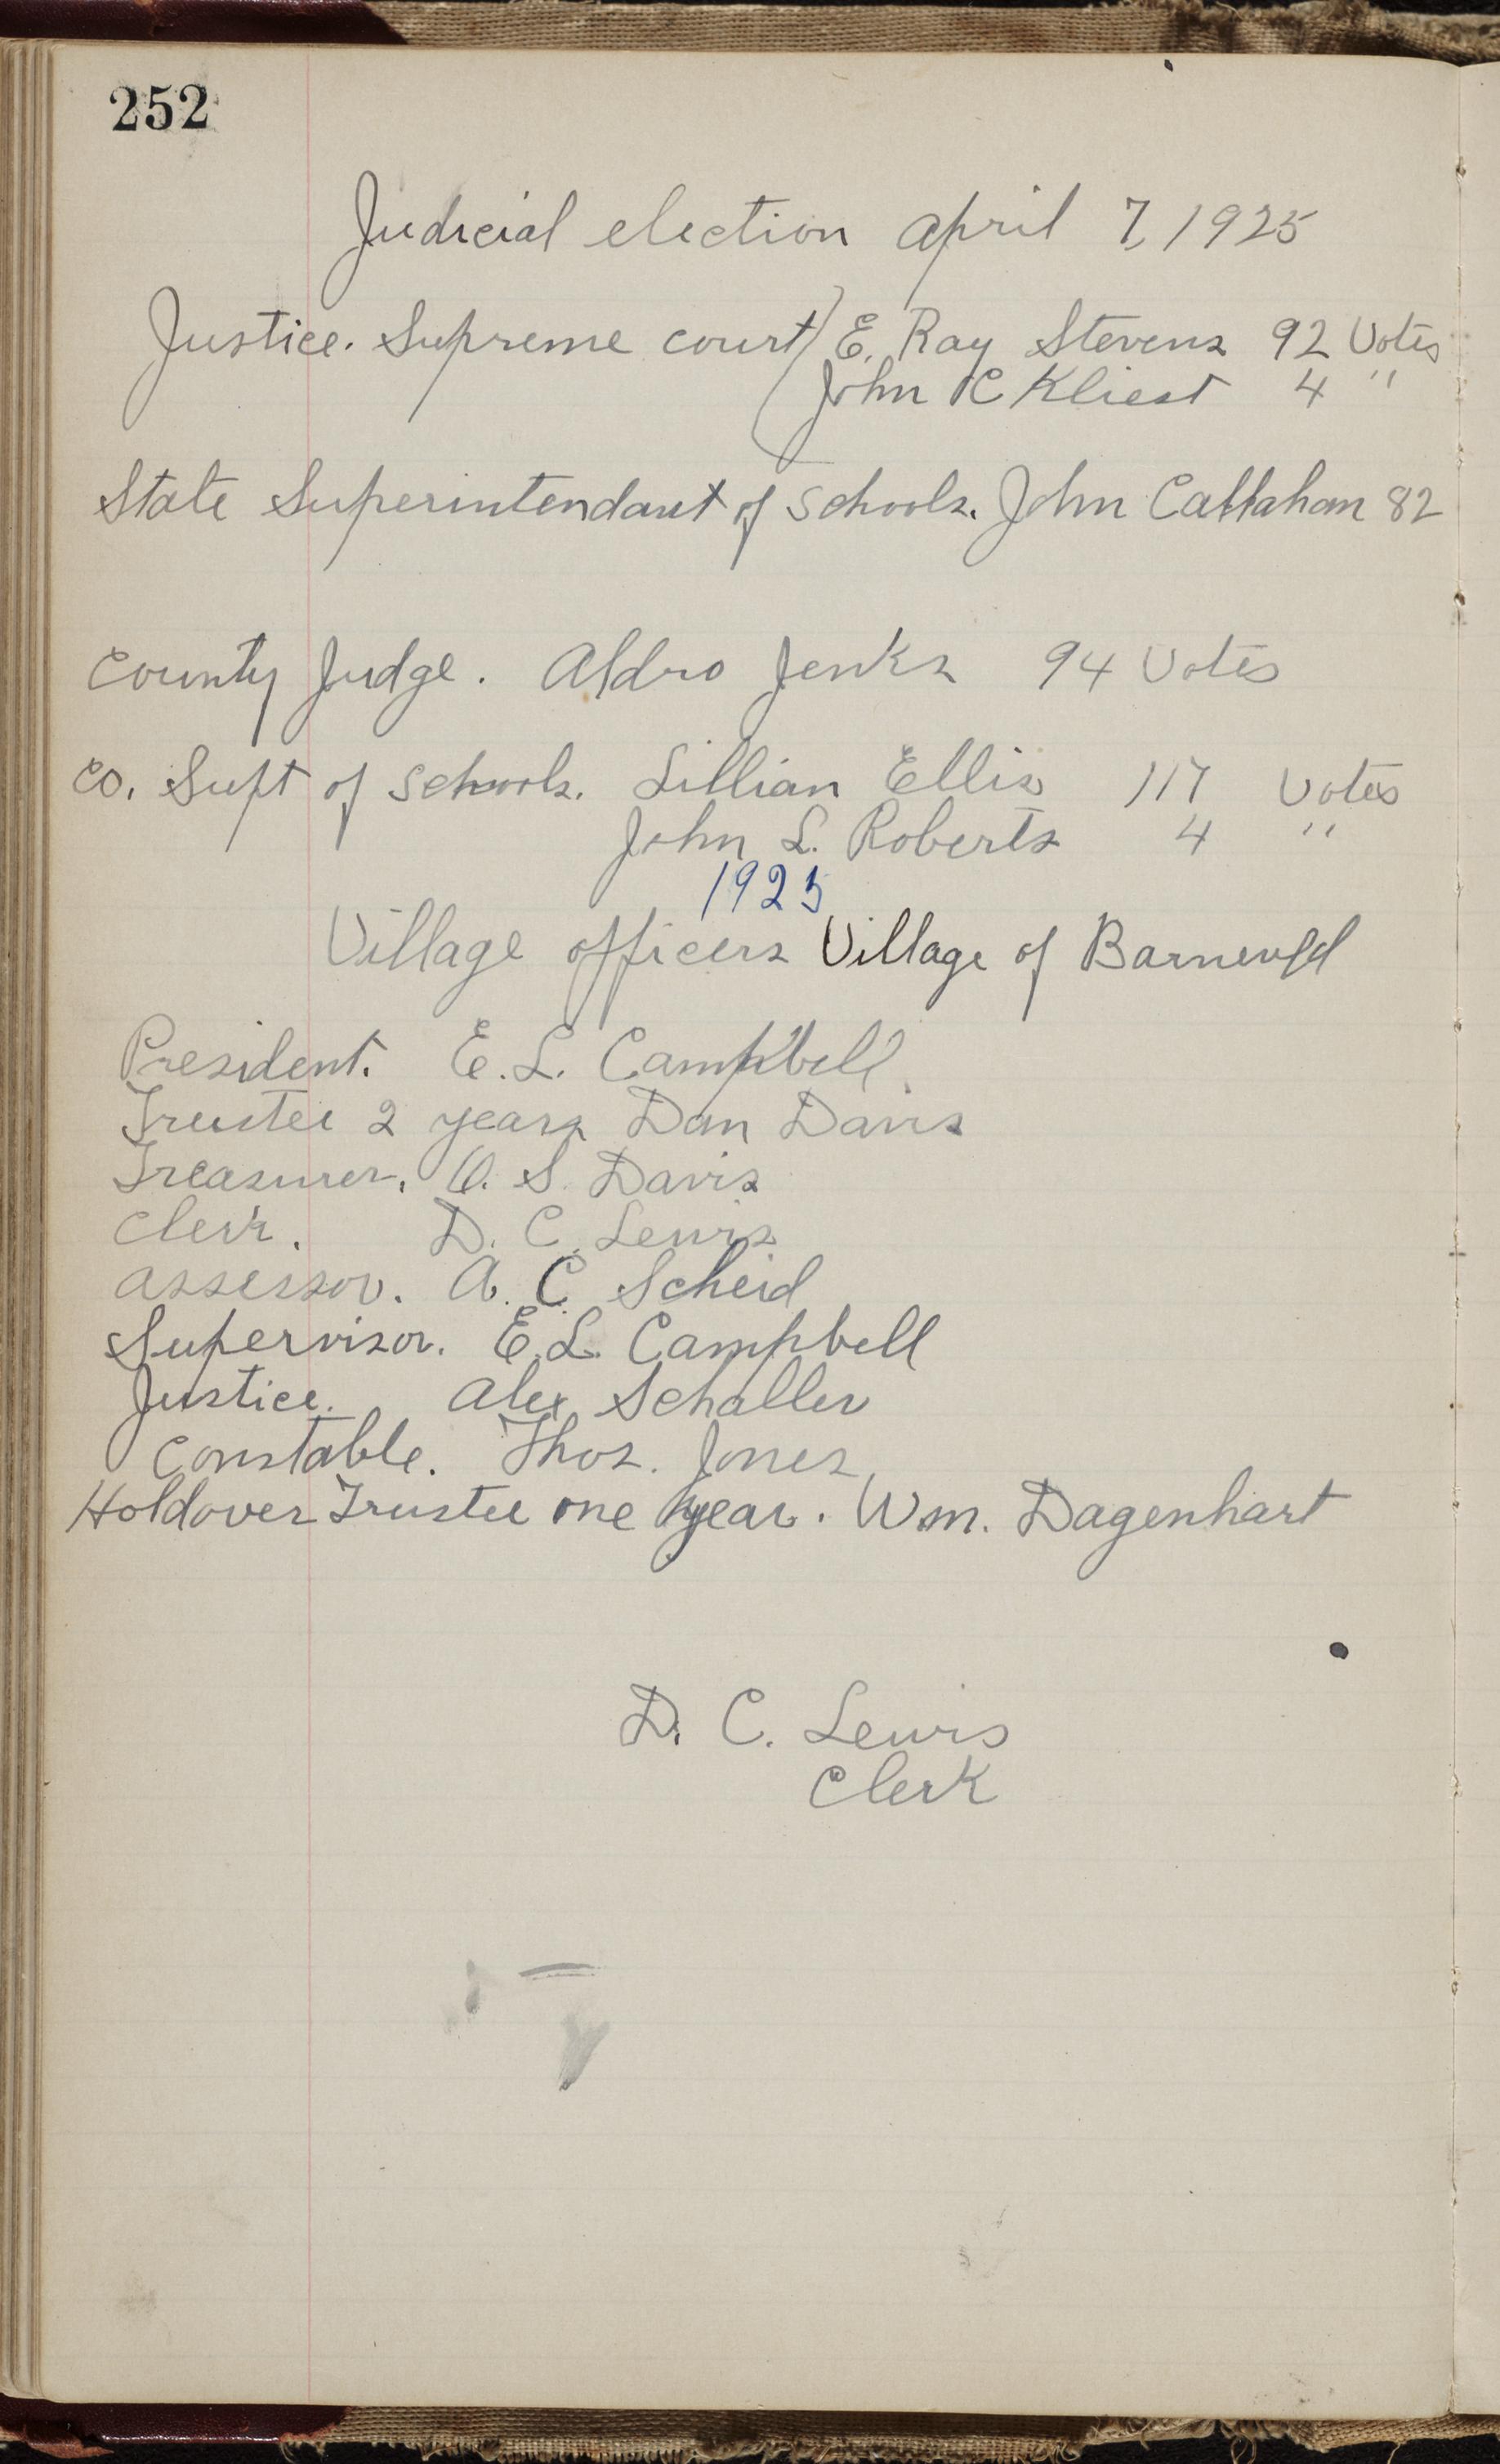 252
Judicial election april 7, 1925
Justice. Supreme court) E. Ray Stevens 92 Votes
John C Kliest 4 "
State Superintendant of Schools. John Callahan 82
County Judge. Aldro Jenks 94 Votes
Co. Supt of Schools. Lillian Ellis 117 Votes
John L. Roberts 4 "
1925
Village officers Village of Barneveld
President. E. L. Campbell
Trustee 2 years Dan Davis
Treasurer. O. S. Davis
Clerk. D. C. Lewis
assessor. A. C. Scheid
Supervisor. E. L. Campbell
Justice. Alex Schaller
Constable. Thos. Jones
Holdover Trustee one year. Wm. Dagenhart
D. C. Lewis
Clerk